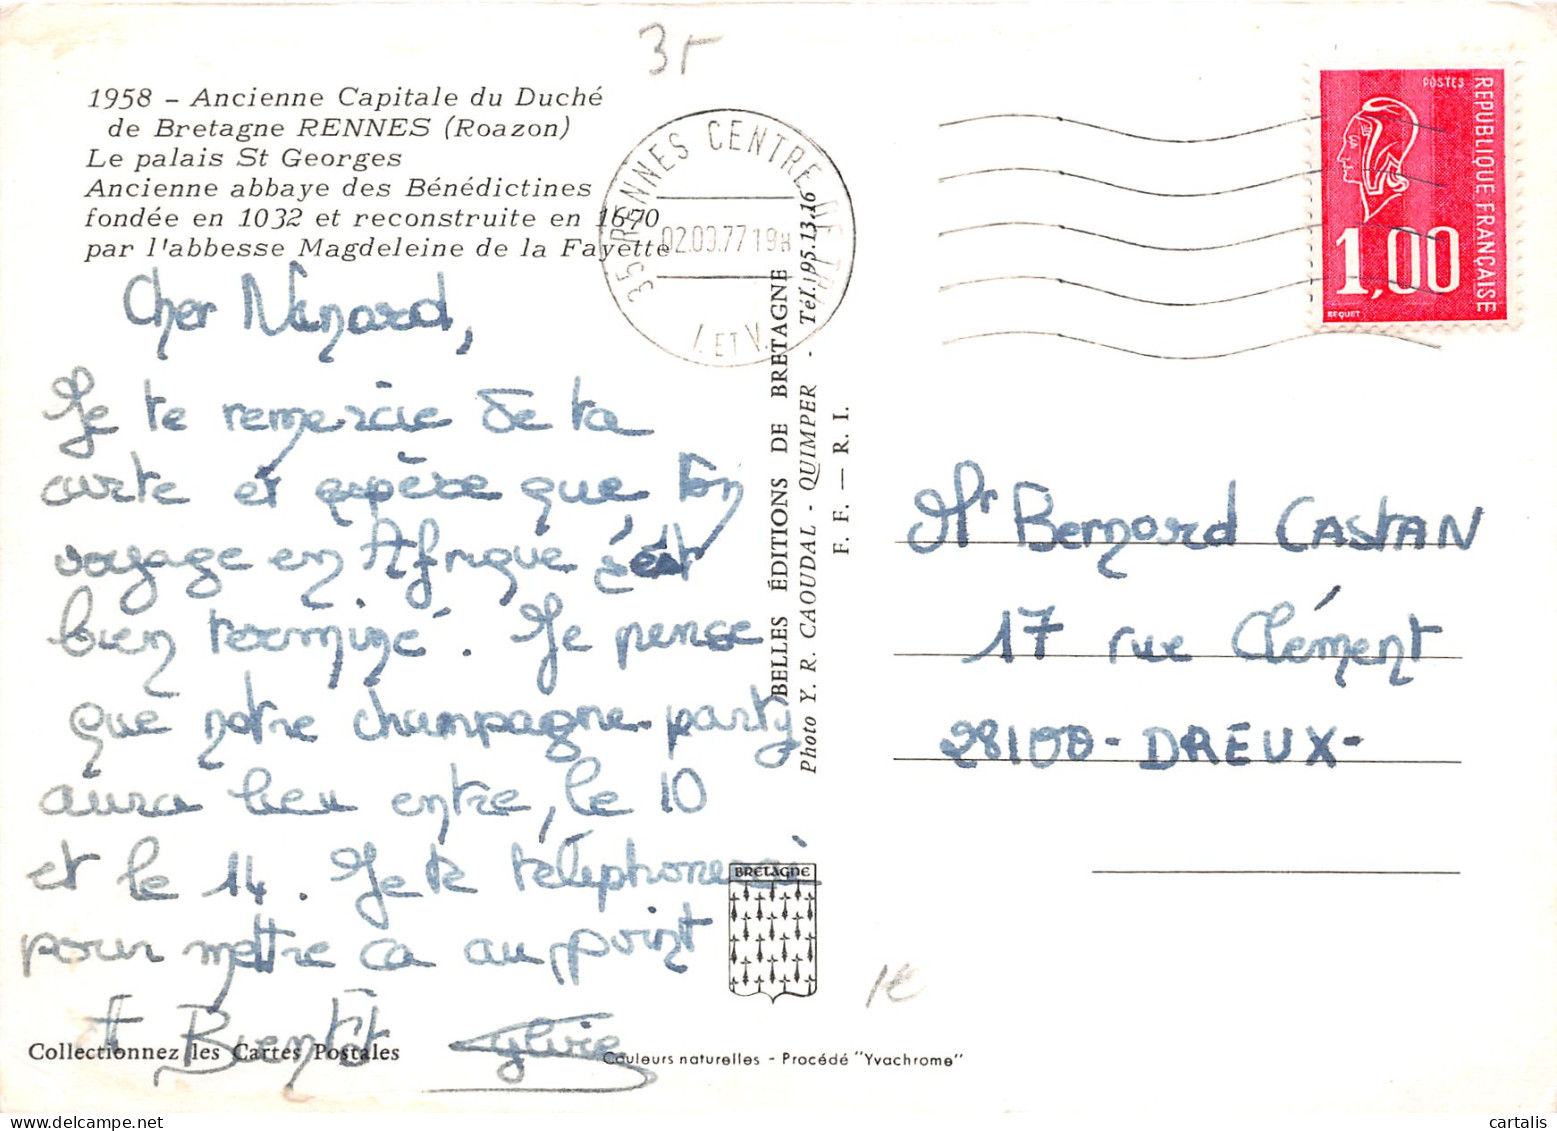 35
1958 – Ancienne Capitale du Duché
de Bretagne RENNES (Roazon)
Le palais St Georges
Ancienne abbaye des Bénédictines
fondée en 1032 et reconstruite en 1670
par l'abbesse Magdeleine de la Fayette
35 RENNES CENTRE DE TRI
02.09.77 19H
I. ET V.
POSTES
REPUBLIQUE FRANÇAISE
1,00
BEQUET
Cher Nanard,
Je te remercie de ta
carte et espère que ton
voyage en Afrique s'est
bien terminé. Je pense
que notre champagne party
aura lieu entre, le 10
et le 14. Je te téléphonerai
pour mettre ca au point
A Bientôt Sylvie
Collectionnez les Cartes Postales
BELLES ÉDITIONS DE BRETAGNE
Photo Y. R. CAOUDAL - QUIMPER - Tél. 95.13.16
F. F. — R. I.
Mr Bernard CASTAN
17 rue Clément
28100 - DREUX -
BRETAGNE
1€
Couleurs naturelles - Procédé "Yvachrome"
cartalis